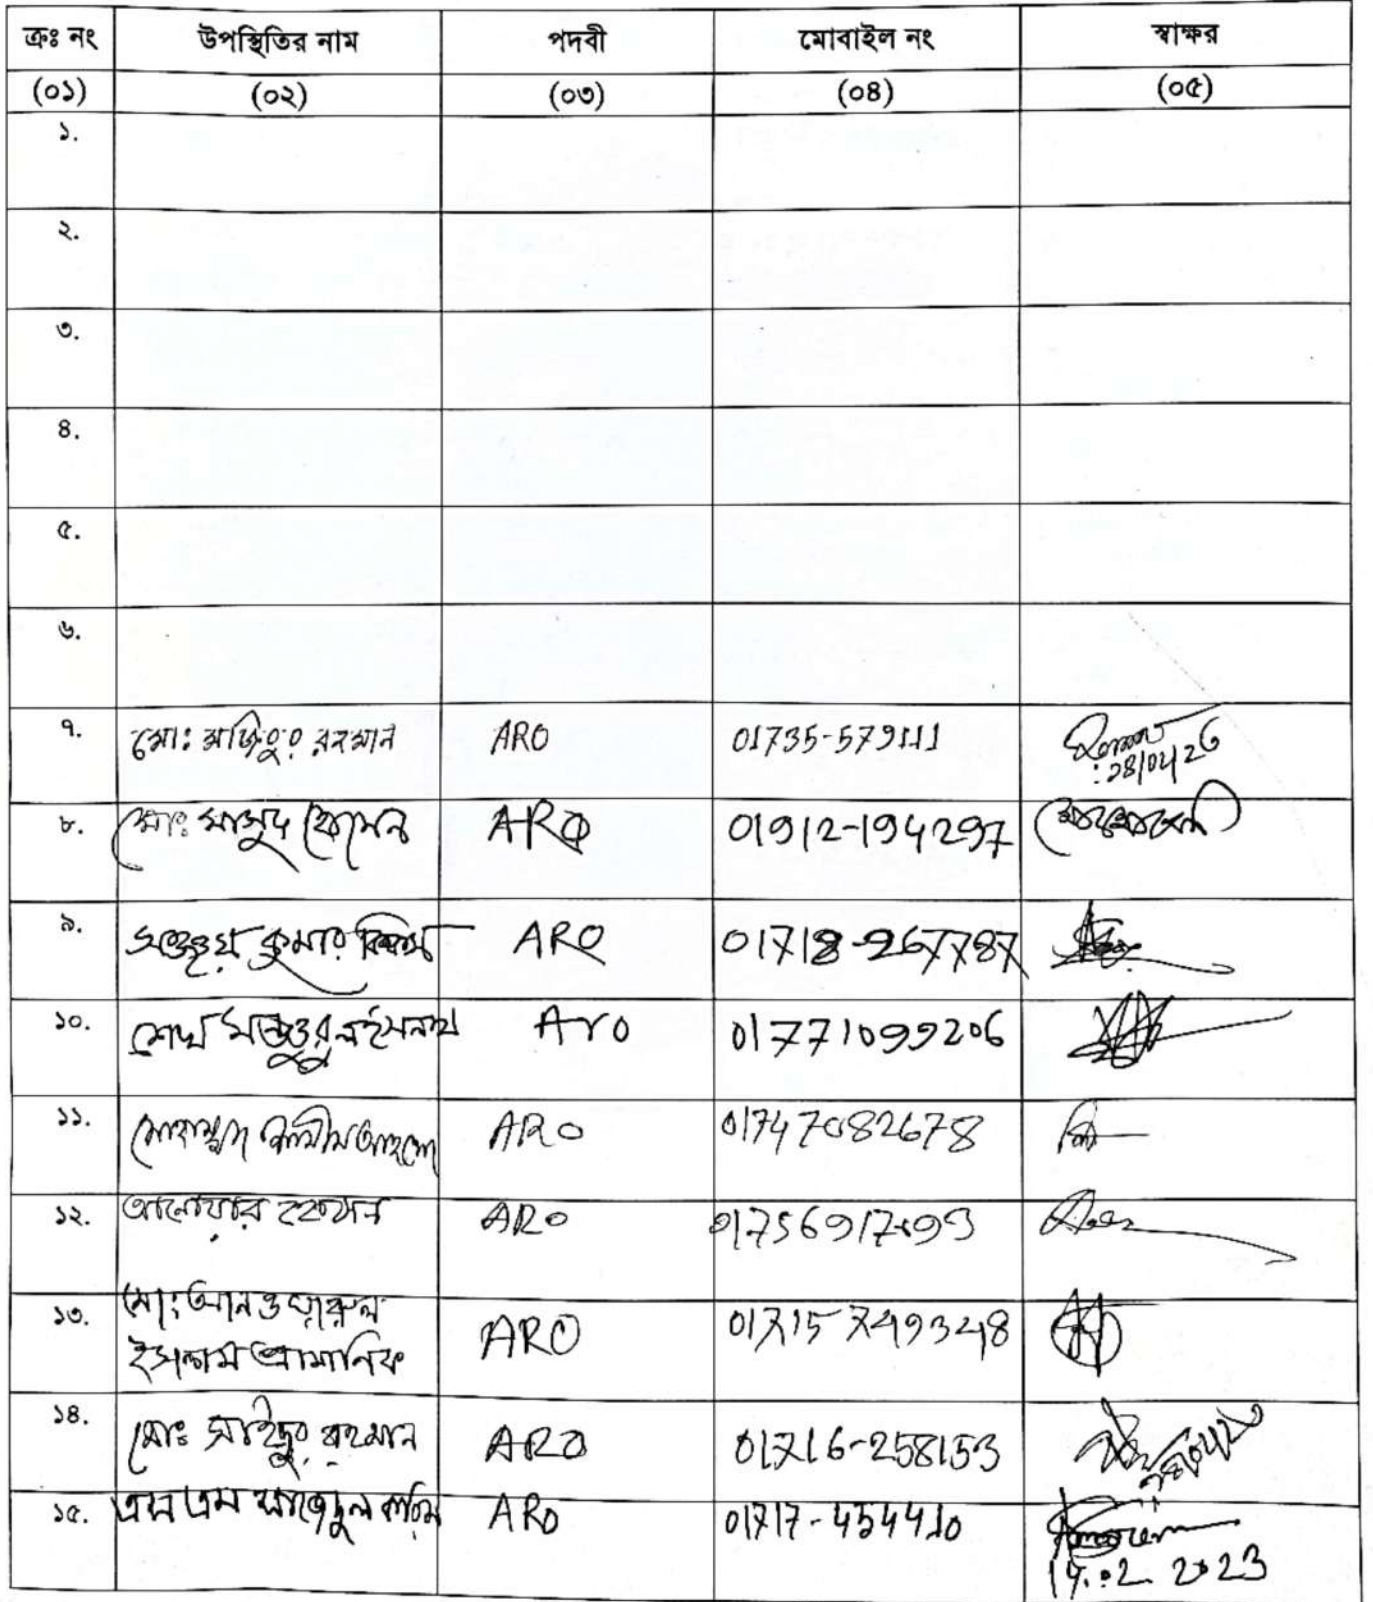 ক্রঃ নং উপস্থিতির নাম পদবী মোবাইল নং স্বাক্ষর
(০১) (০২) (০৩) (০৪) (০৫)
১.
২.
৩.
৪.
৫.
৬.
৭. মোঃ মজিবুর রহমান ARO 01735-579111
৮. মোঃ মাসুদ হোসেন ARO 01912-194297
৯. কুমার বিশ্বাস ARO 01718-267787
১০. শেখ মঞ্জুরুল ইসলাম Aro 01771099206
১১. মোহাম্মদ শামীম আহমেদ ARO 01747082678
১২. আনোয়ার হোসেন ARO
মোঃ আনওয়ারুল
১৩. ইসলাম প্রামানিক ARO 01715749348
১৪. মোঃ সাইদুর রহমান ARO 01716-258153
১৫. এস এম সাজেদুল করিম ARO 01717-454410